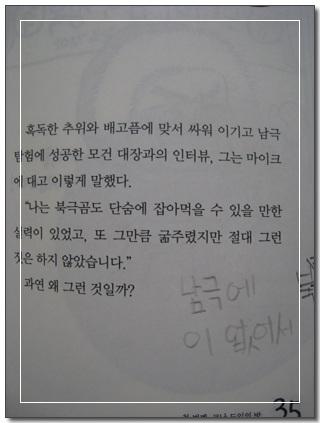 혹독한 추위와 배고픔에 맞서 싸워 이기고 남극
탐험에 성공한 모건 대장과의 인터뷰, 그는 마이크
에 대고 이렇게 말했다.
"나는 북극곰도 단숨에 잡아먹을 수 있을 만한
실력이 있었고, 또 그만큼 굶주렸지만 절대 그런
짓은 하지 않았습니다."
과연 왜 그런 것일까?
남극에
이 없어서
35